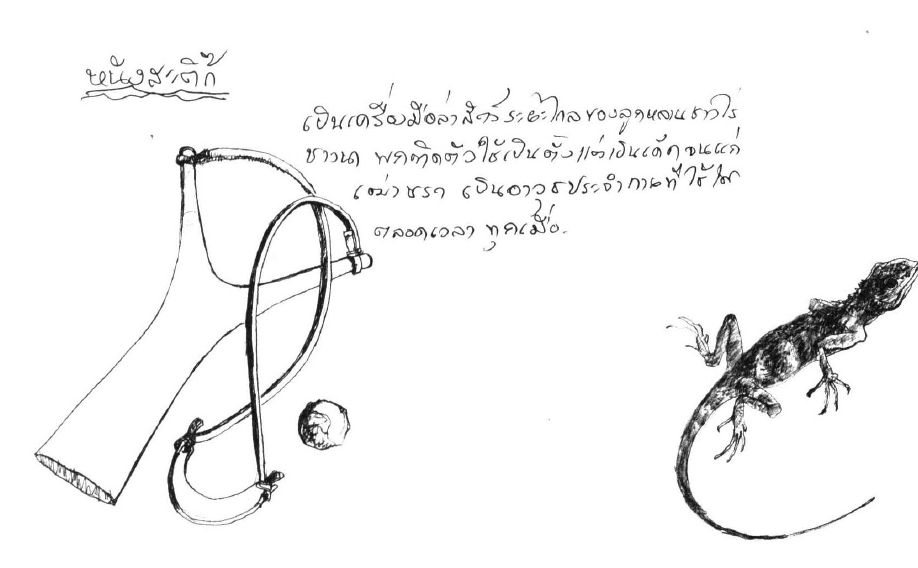 หนังสะติ๊ก
เป็นเครื่องมือล่าสัตว์ระยะไกลของลูกหลานชาวไร่
ชาวนา พกติดตัวใช้เป็นตั้งแต่เป็นเด็กจนแก่
เฒ่าชรา เป็นอาวุธประจำกายที่ใช้ได้
ตลอดเวลา ทุกเมื่อ.